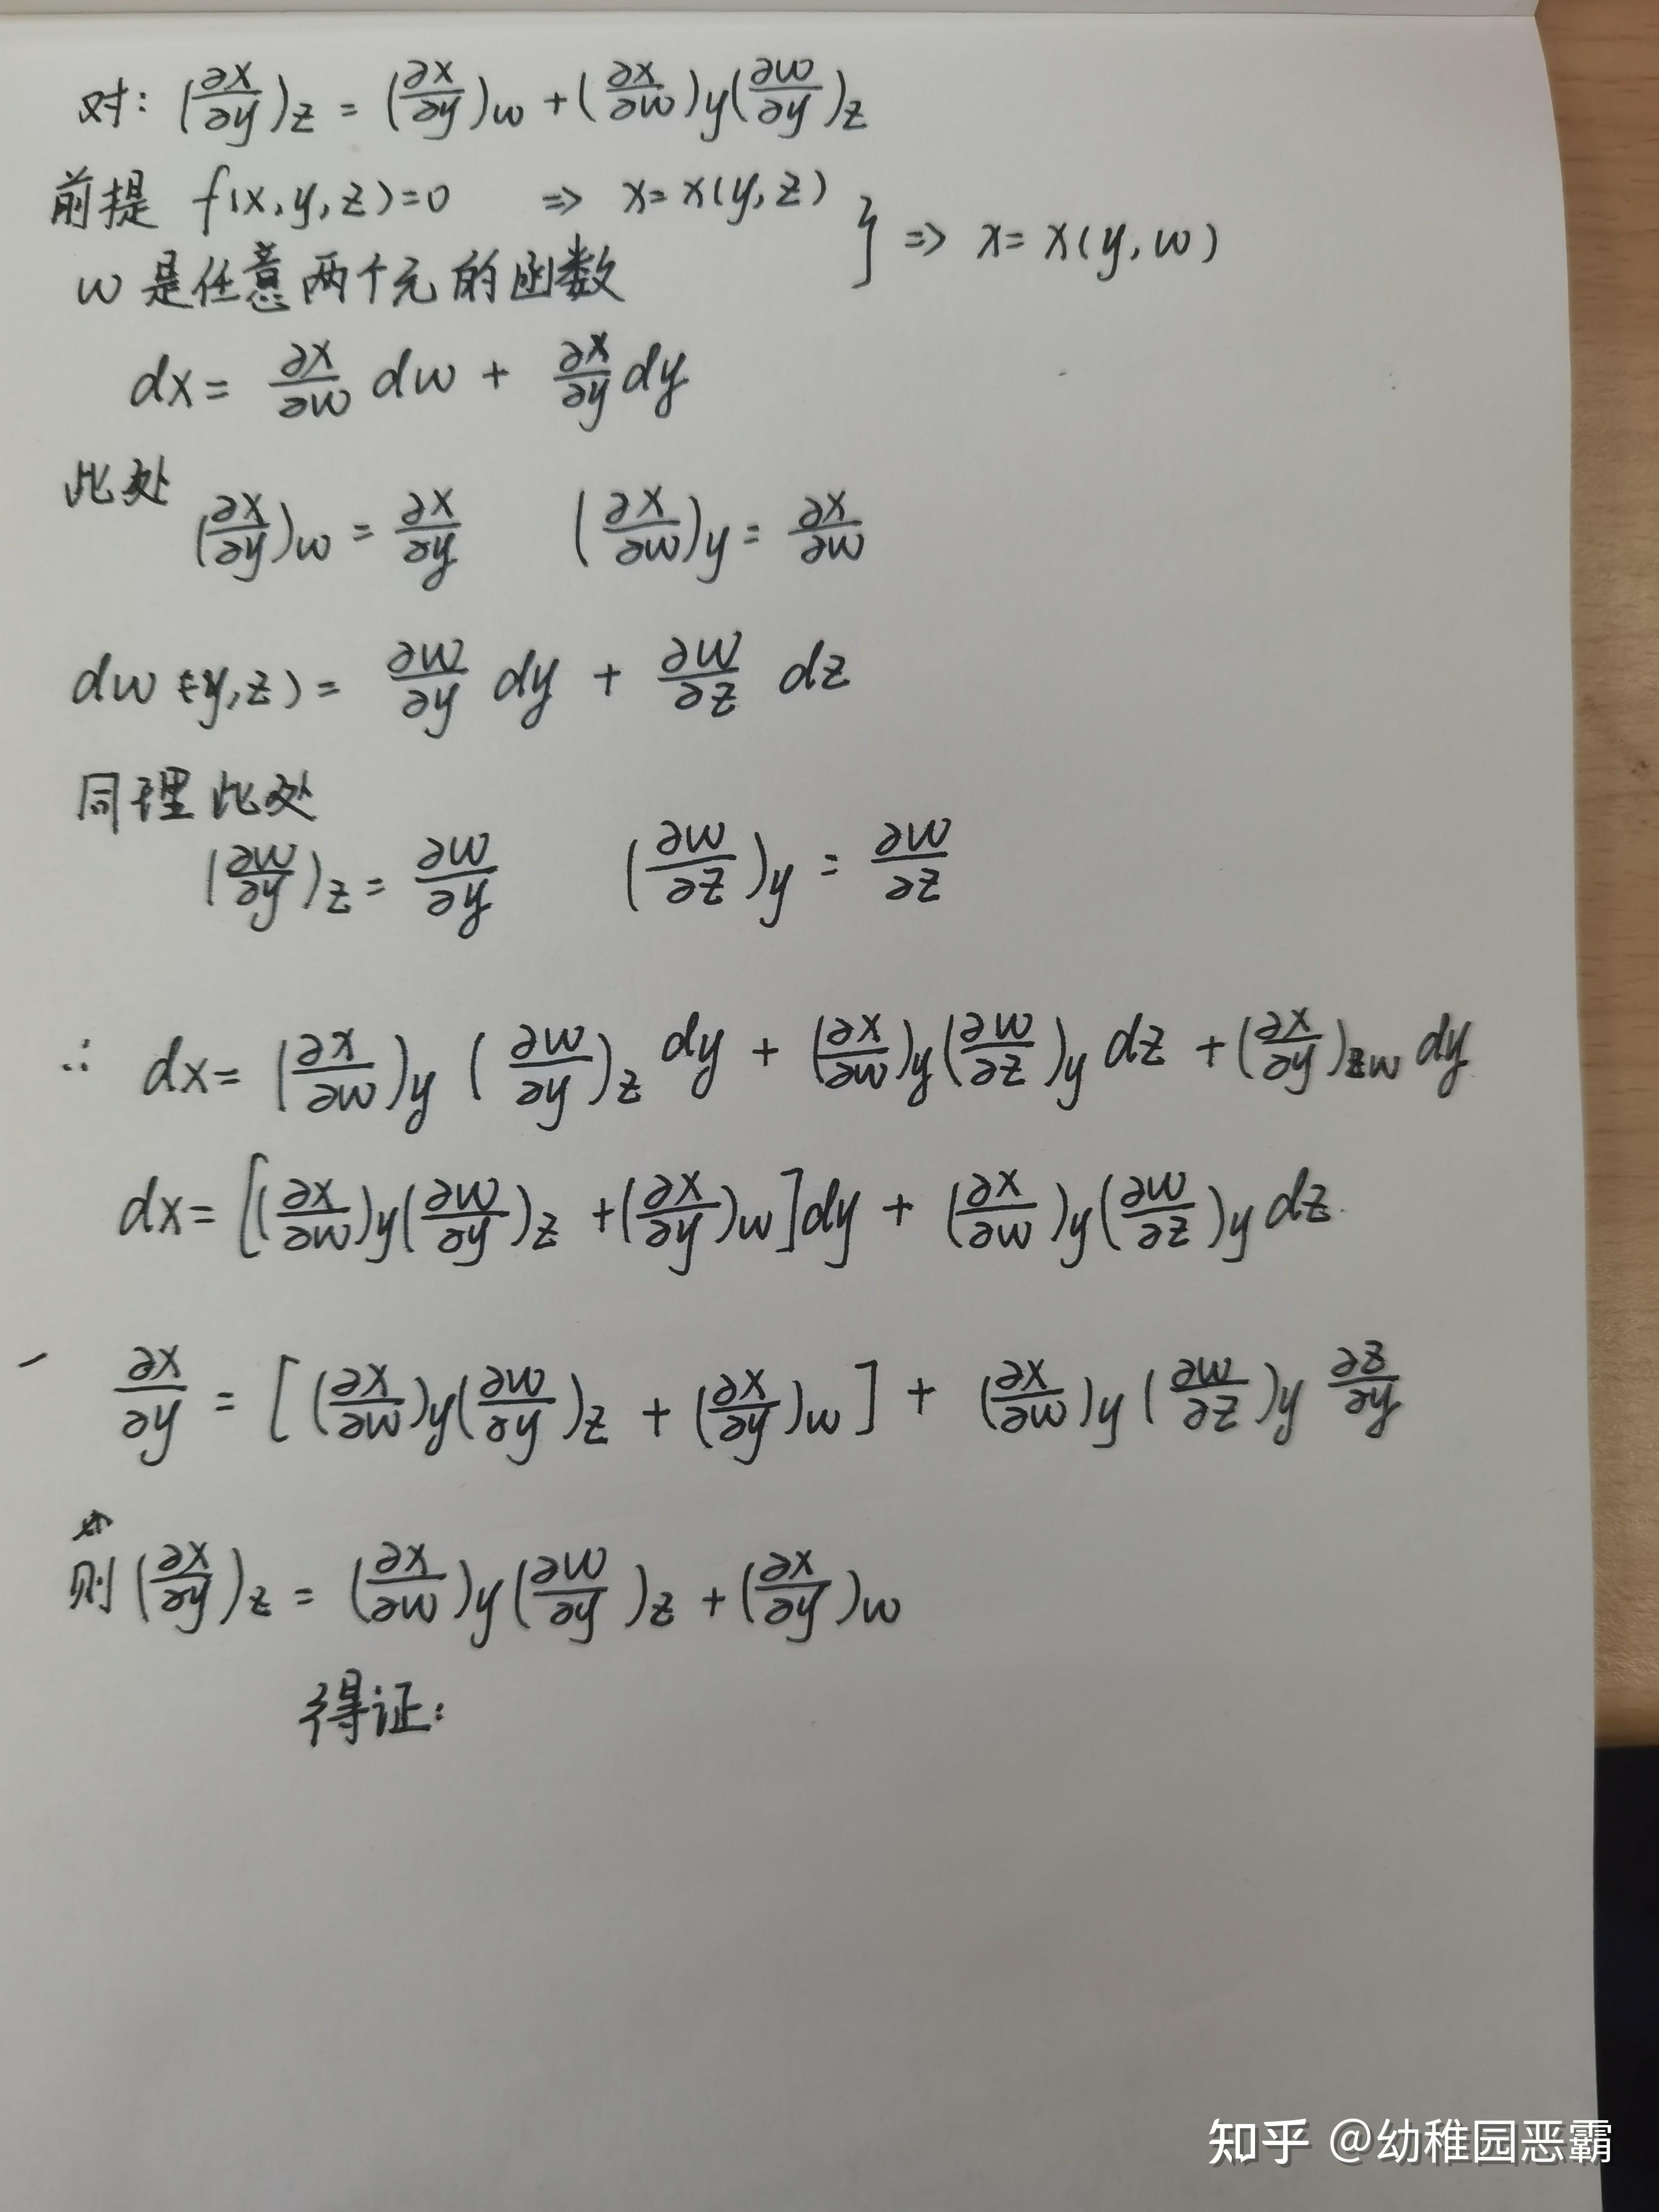 对: (∂x/∂y)z = (∂x/∂y)w + (∂x/∂w)y(∂w/∂y)z
前提 f(x,y,z)=0 ⇒ x=x(y,z)
w 是任意两个元的函数 } ⇒ x=x(y,w)
dx = ∂x/∂w dw + ∂x/∂y dy
此处
(∂x/∂y)w = ∂x/∂y (∂x/∂w)y = ∂x/∂w
dw(y,z) = ∂w/∂y dy + ∂w/∂z dz
同理此处
(∂w/∂y)z = ∂w/∂y (∂w/∂z)y = ∂w/∂z
∴ dx = (∂x/∂w)y (∂w/∂y)z dy + (∂x/∂w)y(∂w/∂z)y dz + (∂x/∂y)w dy
dx = [(∂x/∂w)y(∂w/∂y)z + (∂x/∂y)w]dy + (∂x/∂w)y(∂w/∂z)y dz
∂x/∂y = [(∂x/∂w)y(∂w/∂y)z + (∂x/∂y)w] + (∂x/∂w)y(∂w/∂z)y ∂z/∂y
则(∂x/∂y)z = (∂x/∂w)y(∂w/∂y)z + (∂x/∂y)w
得证:
知乎 @幼稚园恶霸